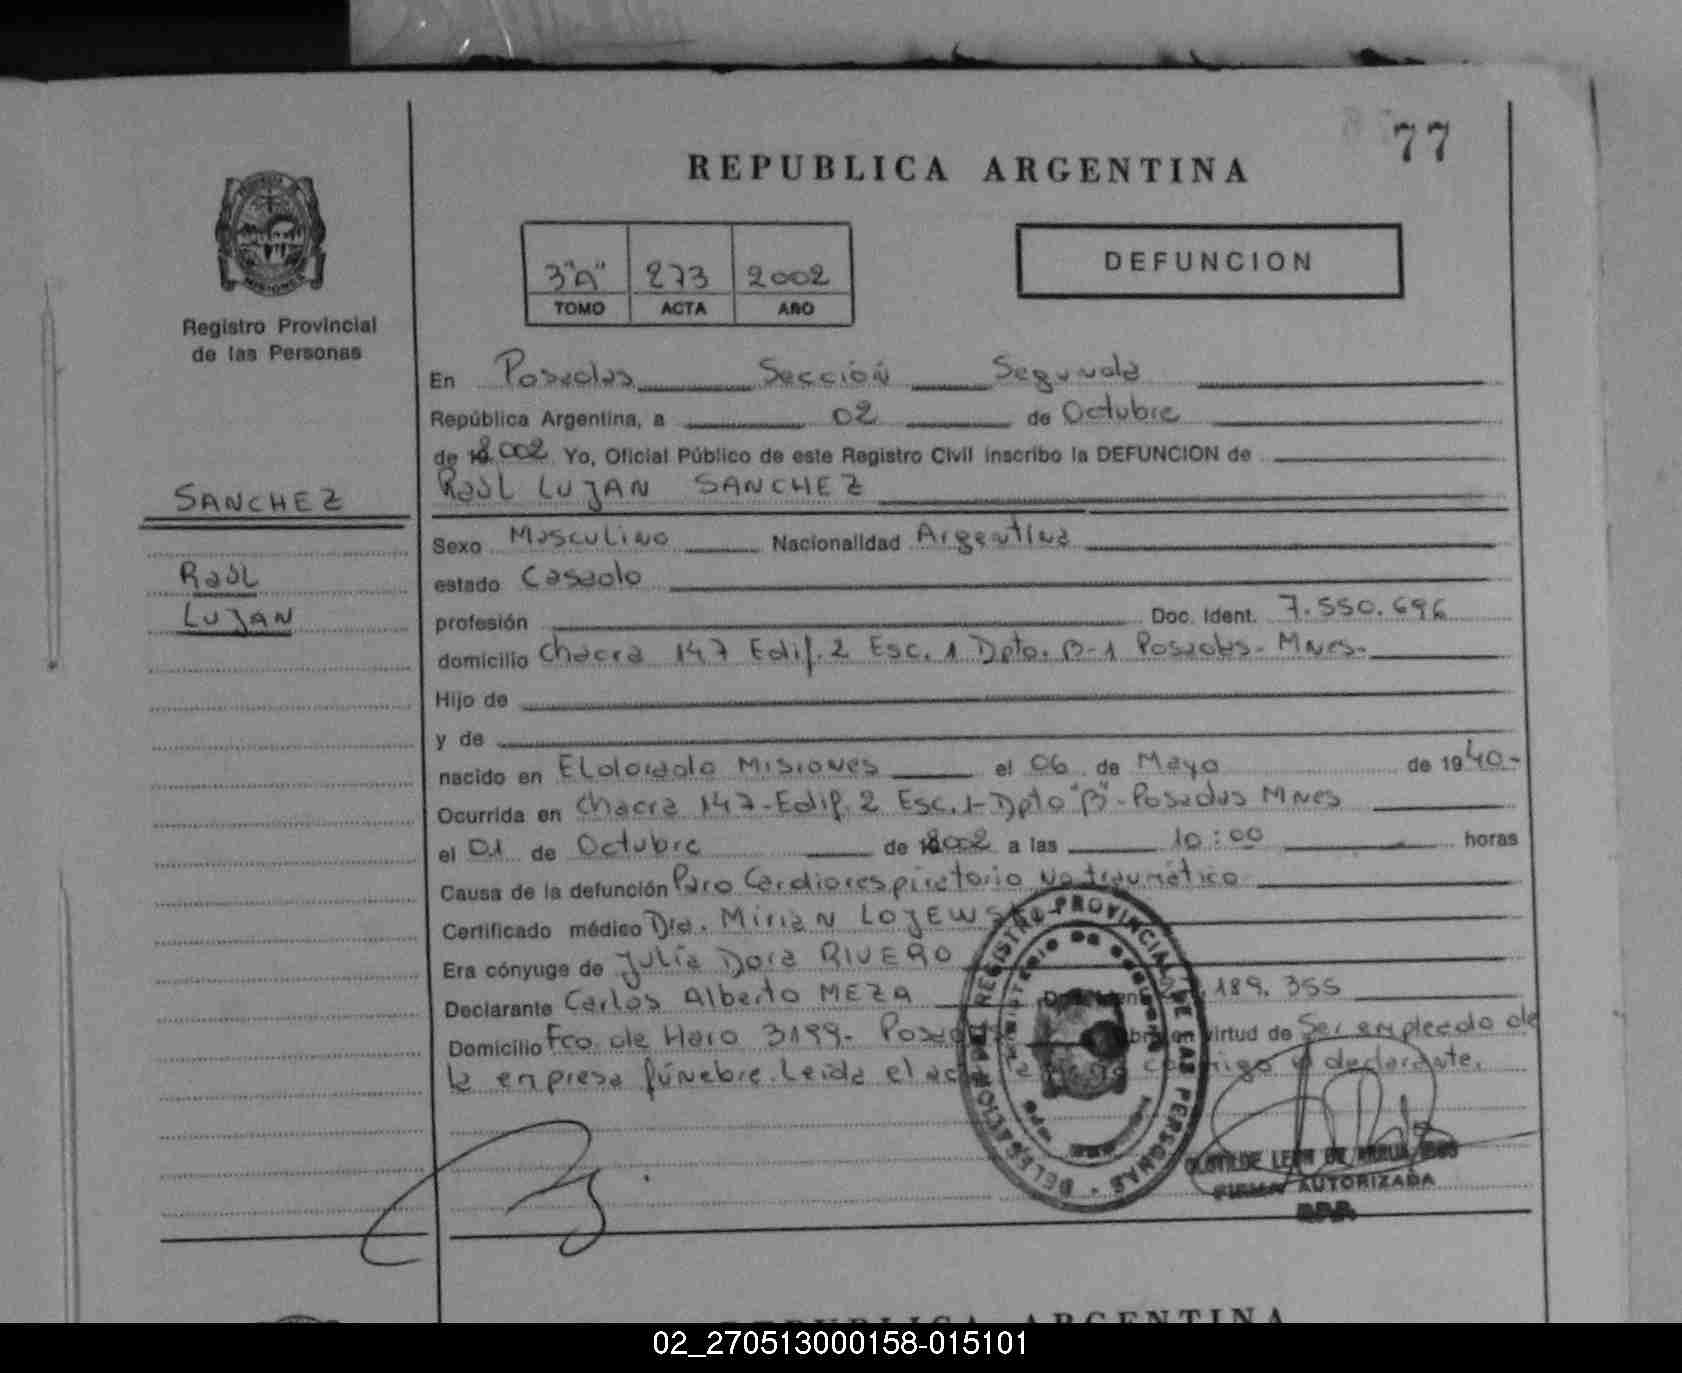 77
REPUBLICA ARGENTINA
3"A" 273 2002
TOMO ACTA AÑO
DEFUNCION
Registro Provincial
de las Personas
SANCHEZ
Raúl
LUJAN
En Posadas Sección Segunda
República Argentina, a 02 de Octubre
de 2002 Yo, Oficial Público de este Registro Civil inscribo la DEFUNCION de
Raúl LUJAN SANCHEZ
Sexo Masculino Nacionalidad Argentina
estado Casado
profesión Doc. Ident. 7.550.696
domicilio Chacra 147 Edif. 2 Esc. 1 Dpto. B-1 Posadas- Mnes.
Hijo de
y de
nacido en Eldorado Misiones el 06 de Mayo de 1940-
Ocurrida en Chacra 147-Edif. 2 Esc. 1-Dpto "B"-Posadas Mnes
el 01 de Octubre de 2002 a las 10:00 horas
Causa de la defunción Paro Cardiorespiratorio no traumático
Certificado médico Dra. Mirian LOJEWSKI
Era cónyuge de Julia Dora RIVERO
Declarante Carlos Alberto MEZA Doc. Ident. .189.355
Domicilio Fco. de Haro 3199- Posadas virtud de Ser empleado de
la empresa fúnebre. Leída el acta la firma conmigo el declarante.
REGISTRO PROVINCIAL DE LAS PERSONAS - DELEGACION
MINISTERIO DE GOBIERNO
CLOTILDE LEON DE
FIRMA AUTORIZADA
REPUBLICA ARGENTINA
02_270513000158-015101